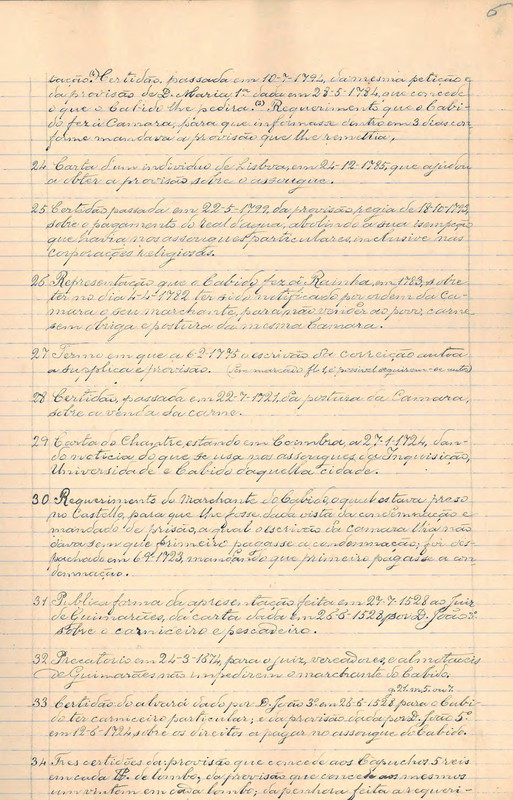 6
tação.(1) Certidão, passada em 10-7-1794, da mesma petição e
da provisão de D. Maria 1ª dada em 28-5-1784, que concede
o que o Cabido lhe pedira.(2) Requerimento que o Cabi-
do fez á Camara, para que informasse dentro em 3 dias con-
forme mandava a provisão que lhe remettia,
24 Carta d'um individuo de Lisboa, em 24-12-1785, que ajudou
a obter a provisão sobre o assougue.
25 Certidão passada em 22-5-1799, da provisão regia de 18-10-
sobre o pagamento do real d'agua, abolindo a sua isempção
que havia nos assougues particulares, inclusive nas
corporações religiosas.
26 Representação que o Cabido fez á Rainha, em 1783, sobre
ter no dia 4-4-1782 ter sido notificado por ordem da Ca-
mara o seu marchante, para não vender ao povo, carne
sem obriga e postura da mesma Camara.
27 Termo em que a 6-2-1775 o escrivão da correição autoa
a supplica e provisão.
28 Certidão, passada em 22-7-1721, da postura da Camara,
sobre a venda da carne.
29 Carta do Chantre, estando em Coimbra, a 27-1-1724, dan-
do noticia do que se usa nos assougues da Inquisição,
Universidade e Cabido daquella cidade.
30 Requerimento do Marchante do Cabido, o qual estava preso
no Castello, para que lhe fosse dada vista da condemnação e
mandado de prisão, a qual o escrivão da camara lh'a não
dava sem que primeiro pagasse a condemnação; foi des-
pachado em 6-9-1723, mandando que primeiro pagasse a con
demnação.
31 Publica forma da apresentação feita em 27-7-1528 ao Juiz
de Guimarães, da carta dada em 26-6-1528, por D. João 3º
sobre o carniceiro e pescadeiro.
32 Precatorio em 24-3-1674, para o juiz, vereadores, e almotacés
de Guimarães não impedirem o marchante do Cabido.
33 Certidão do alvará dado por D. João 3º em 26-6-1528 para o Cabi-
do ter carniceiro particular; e da provisão dada por D. João 5º
em 12-6-1724 sobre os direitos a pagar no assougue do Cabido.
34 Tres certidões da: provisão que concede aos Capuchos 5 reis
em cada de lombo; da provisão que concede aos mesmos
um vintem em cada lombo; da penhora feita a requeri-